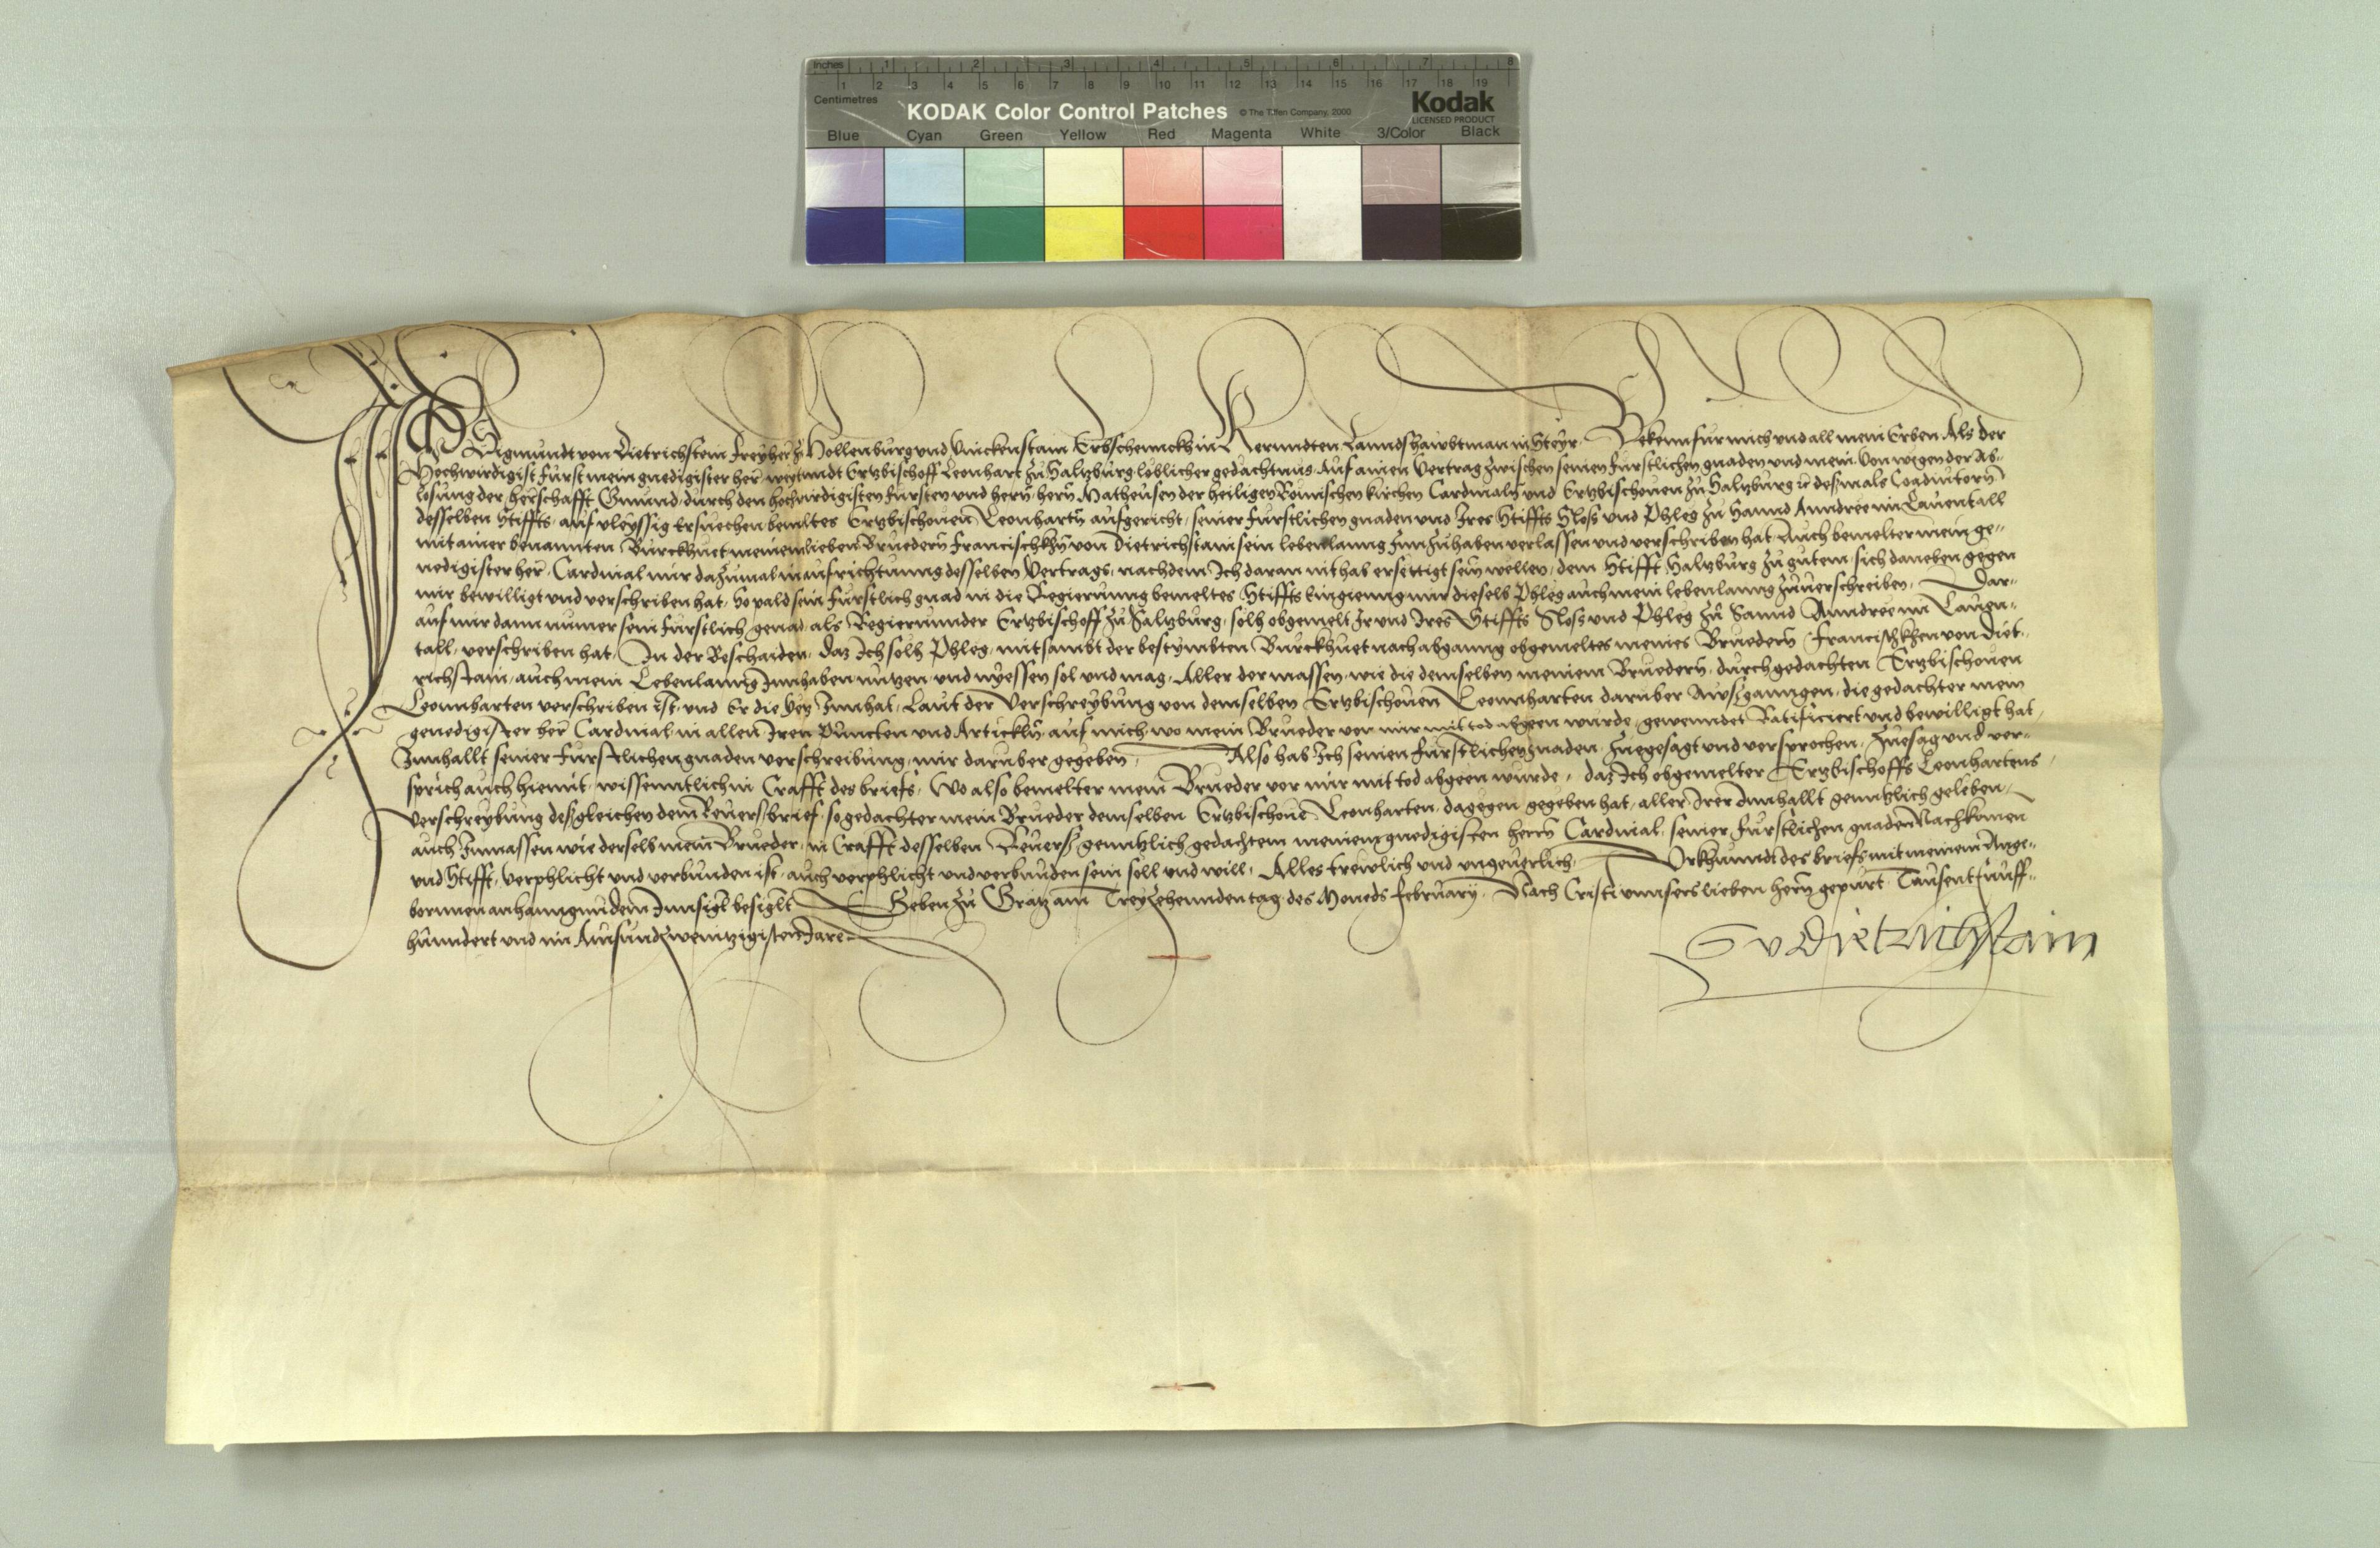 Inches 1 2 3 4 5 6 7 8
1 2 3 4 5 6 7 8 9 10 11 12 13 14 15 16 17 18 19
Centimetres
KODAK Color Control Patches © The Tiffen Company, 2000 Kodak
LICENSED PRODUCT
Blue Cyan Green Yellow Red Magenta White 3/Color Black
Ich Sigmundt von Dietrichstein Freyherr zu Hollenburg und Vinckenstain Erbschennckh in Kernndten Lanndshawbtman in Steyr Bekenn fur mich und all mein Erben Als der
Hochwirdigist Furst mein gnedigister herr weylendt Ertzbischoff Leonhart zu Saltzburg loblicher gedachtnus Auf ainen Vertrag zwischen seinen furstlichen gnaden und mein von wegen der Ab-
losung der herschafft Gmund durch den hochwirdigisten Fursten und hern hern Matheusen der heiligen Römischen kirchen Cardinaln und Ertzbischoven zu Saltzburg deszmals Coadiutorn
desselben Stiffts auf vleyssig Ersuechen bemeltes Ertzbischoven Leonharts aufgericht seiner furstlichen gnaden und Ires Stiffts Sloss und Phleg zu Sannd Anndree im Lavenntall
mit ainer benannten Burckhuet meinem lieben Bruedern Francischkhn von Dietrichstain sein lebenlanng Inn zu haben verlassen und verschriben hat Auch bemelter mein ge-
nedigister herr Cardinal mir dazumal in aufrichtunng desselben Vertrags nachdem Ich daran nit hab ersettigt sein wellen dem Stifft Saltzburg zu gutem sich daneben gegen
mir bewilligt und verschriben hat So pald sein Furstlich gnad in die Regierunng bemeltes Stiffts eingienng mir dieselb Phleg auch mein lebenlanng zuverschreiben Dar-
auf mir dann numer sein furstlich genad als Regierunder Ertzbischoff zu Saltzburg solh obgemelt Ir und Ires Stiffts Sloss und Phleg zu Sannd Anndree im Laven-
tall verschriben hat In der Beschaiden daz Ich solh Phleg mitsambt der bestymbten Burckhuet nach abganng obgemeltes meines Bruedern Francischkhen von Diet-
richstain auch mein Lebenlanng Innhaben nutzen und nyessen sol und mag Aller dermassen wie die demselben meinem Bruedern durch gedachten Ertzbischoven
Leonnharten verschriben ist und Er die yetz Innhat Laut der Verschreybung von demselben Ertzbischoven Leonnharten daruber Auszganngen die gedachter mein
genedigister herr Cardinal in allen Iren Puncten und Articklen auf mich wo mein Brueder vor mir mit tod abgeen wurde gewenndet Ratificiert und bewilligt hat
Innhallt seiner Furstlichen gnaden verschreibung mir daruber gegeben Also hab Ich seinen furstlichen gnaden zuegesagt und versprochen zuesag und ver-
sprich auch hiemit wissenntlich in Crafft des briefs Wo also bemelter mein Brueder vor mir mit tod abgeen wurde daz Ich obgemelter Ertzbischoffs Leonhartens
Verschreybung desgleichen dem Revers brief so gedachter mein Brueder demselben Ertzbischove Leonharten dagegen gegeben hat aller Irer Innhallt genntzlich geleben
auch Inmassen wie derselb mein Brueder in Crafft desselben Reversz genntzlich gedachtem meinem gnedigisten herrn Cardinal seiner furstlichen gnaden Nachkomen
und Stifft verphlicht und verbunden ist auch verphlicht und verbunden sein soll und will Alles trewlich und ungeverlich Urkhundt des briefs mit meinem Ange-
bornnen anhanngundem Innsigl besiglt Geben zu Gratz am Treyzehennden tag des Moneds February Nach Cristi unnsers lieben hern gepurt Tausent funff-
hunndert und im Ainsundzwentzigisten Jare
S v Dietrichstain